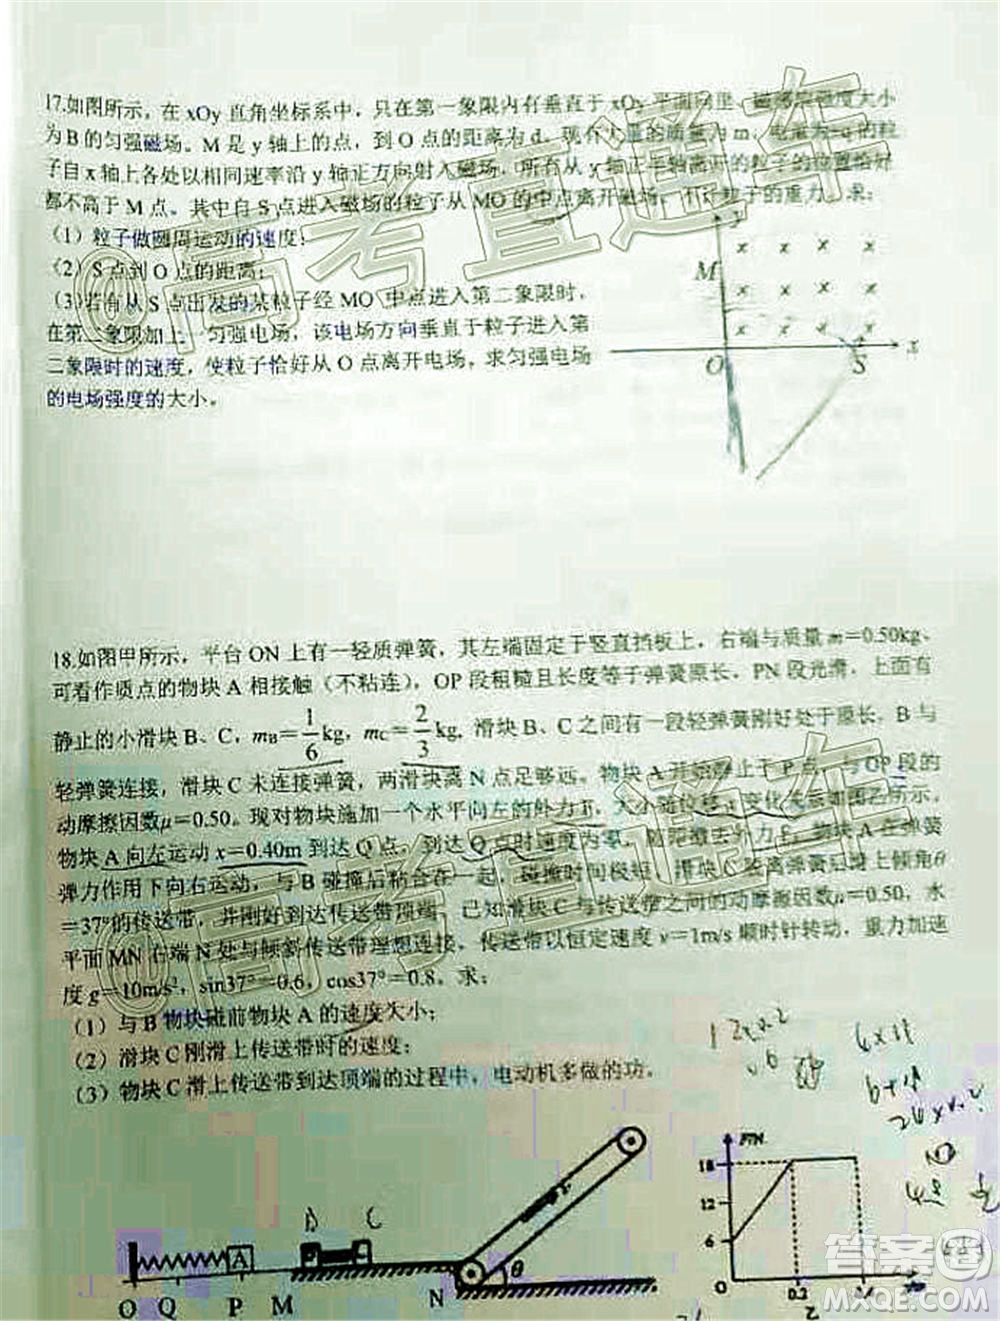 17.如图所示，在 xOy 直角坐标系中，只在第一象限内有垂直于 xOy 平面向里、磁感应强度大小
为 B 的匀强磁场。M 是 y 轴上的一点，到 O 点的距离为 d。现有大量的质量为 m、电量为-q 的粒
子自 x 轴上各处以相同速率沿 y 轴正方向射入磁场，所有从 y 轴正半轴离开的粒子的位置恰好
都不高于 M 点。其中自 S 点进入磁场的粒子从 MO 的中点离开磁场，不计粒子的重力，求：
（1）粒子做圆周运动的速度；
（2）S 点到 O 点的距离；
（3）若有从 S 点出发的某粒子经 MO 中点进入第二象限时，
在第二象限加上一匀强电场，该电场方向垂直于粒子进入第
二象限时的速度，使粒子恰好从 O 点离开电场，求匀强电场
的电场强度的大小。
y
M
O
S
x
18.如图甲所示，平台 ON 上有一轻质弹簧，其左端固定于竖直挡板上，右端与质量 m＝0.50kg、
可看作质点的物块 A 相接触（不粘连），OP 段粗糙且长度等于弹簧原长，PN 段光滑，上面有
静止的小滑块 B、C，mB＝1/6kg，mC＝2/3kg，滑块 B、C 之间有一段轻弹簧刚好处于原长，B 与
轻弹簧连接，滑块 C 未连接弹簧，两滑块离 N 点足够远。物块 A 开始静止于 P 点，与 OP 段的
动摩擦因数μ＝0.50。现对物块施加一个水平向左的外力 F，大小随位移 x 变化关系如图乙所示。
物块 A 向左运动 x＝0.40m 到达 Q 点，到达 Q 点时速度为零，随即撤去外力 F，物块 A 在弹簧
弹力作用下向右运动，与 B 碰撞后粘在一起，碰撞时间极短。滑块 C 脱离弹簧后滑上倾角θ
＝37°的传送带，并刚好到达传送带顶端。已知滑块 C 与传送带之间的动摩擦因数μ＝0.50，水
平面 MN 右端 N 处与倾斜传送带理想连接，传送带以恒定速度 v＝1m/s 顺时针转动，重力加速
度 g＝10m/s²，sin37°＝0.6，cos37°＝0.8。求：
（1）与 B 物块碰前物块 A 的速度大小；
（2）滑块 C 刚滑上传送带时的速度；
（3）物块 C 滑上传送带到达顶端的过程中，电动机多做的功。
C
A
O Q P M N
θ
F/N
18
12
6
0.2
乙
@高考直通车
@高考直通车
答案圈
MXQE.COM